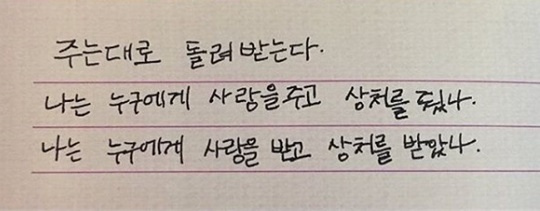 주는대로 돌려받는다.
나는 누구에게 사랑을 주고 상처를 줬나.
나는 누구에게 사랑을 받고 상처를 받았나.